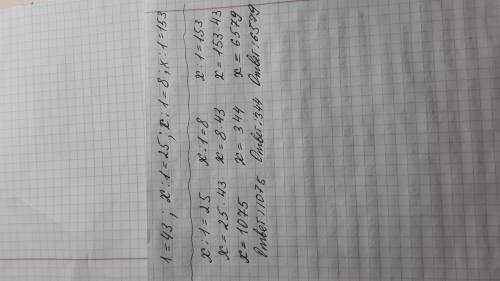 1=43; x:1=25; x:1=8; x:1=153
x:1=25
x=25·43
x=1075
Ответ:1075
x:1=8
x=8·43
x=344
Ответ:344
x:1=153
x=153·43
x=6579
Ответ:6579